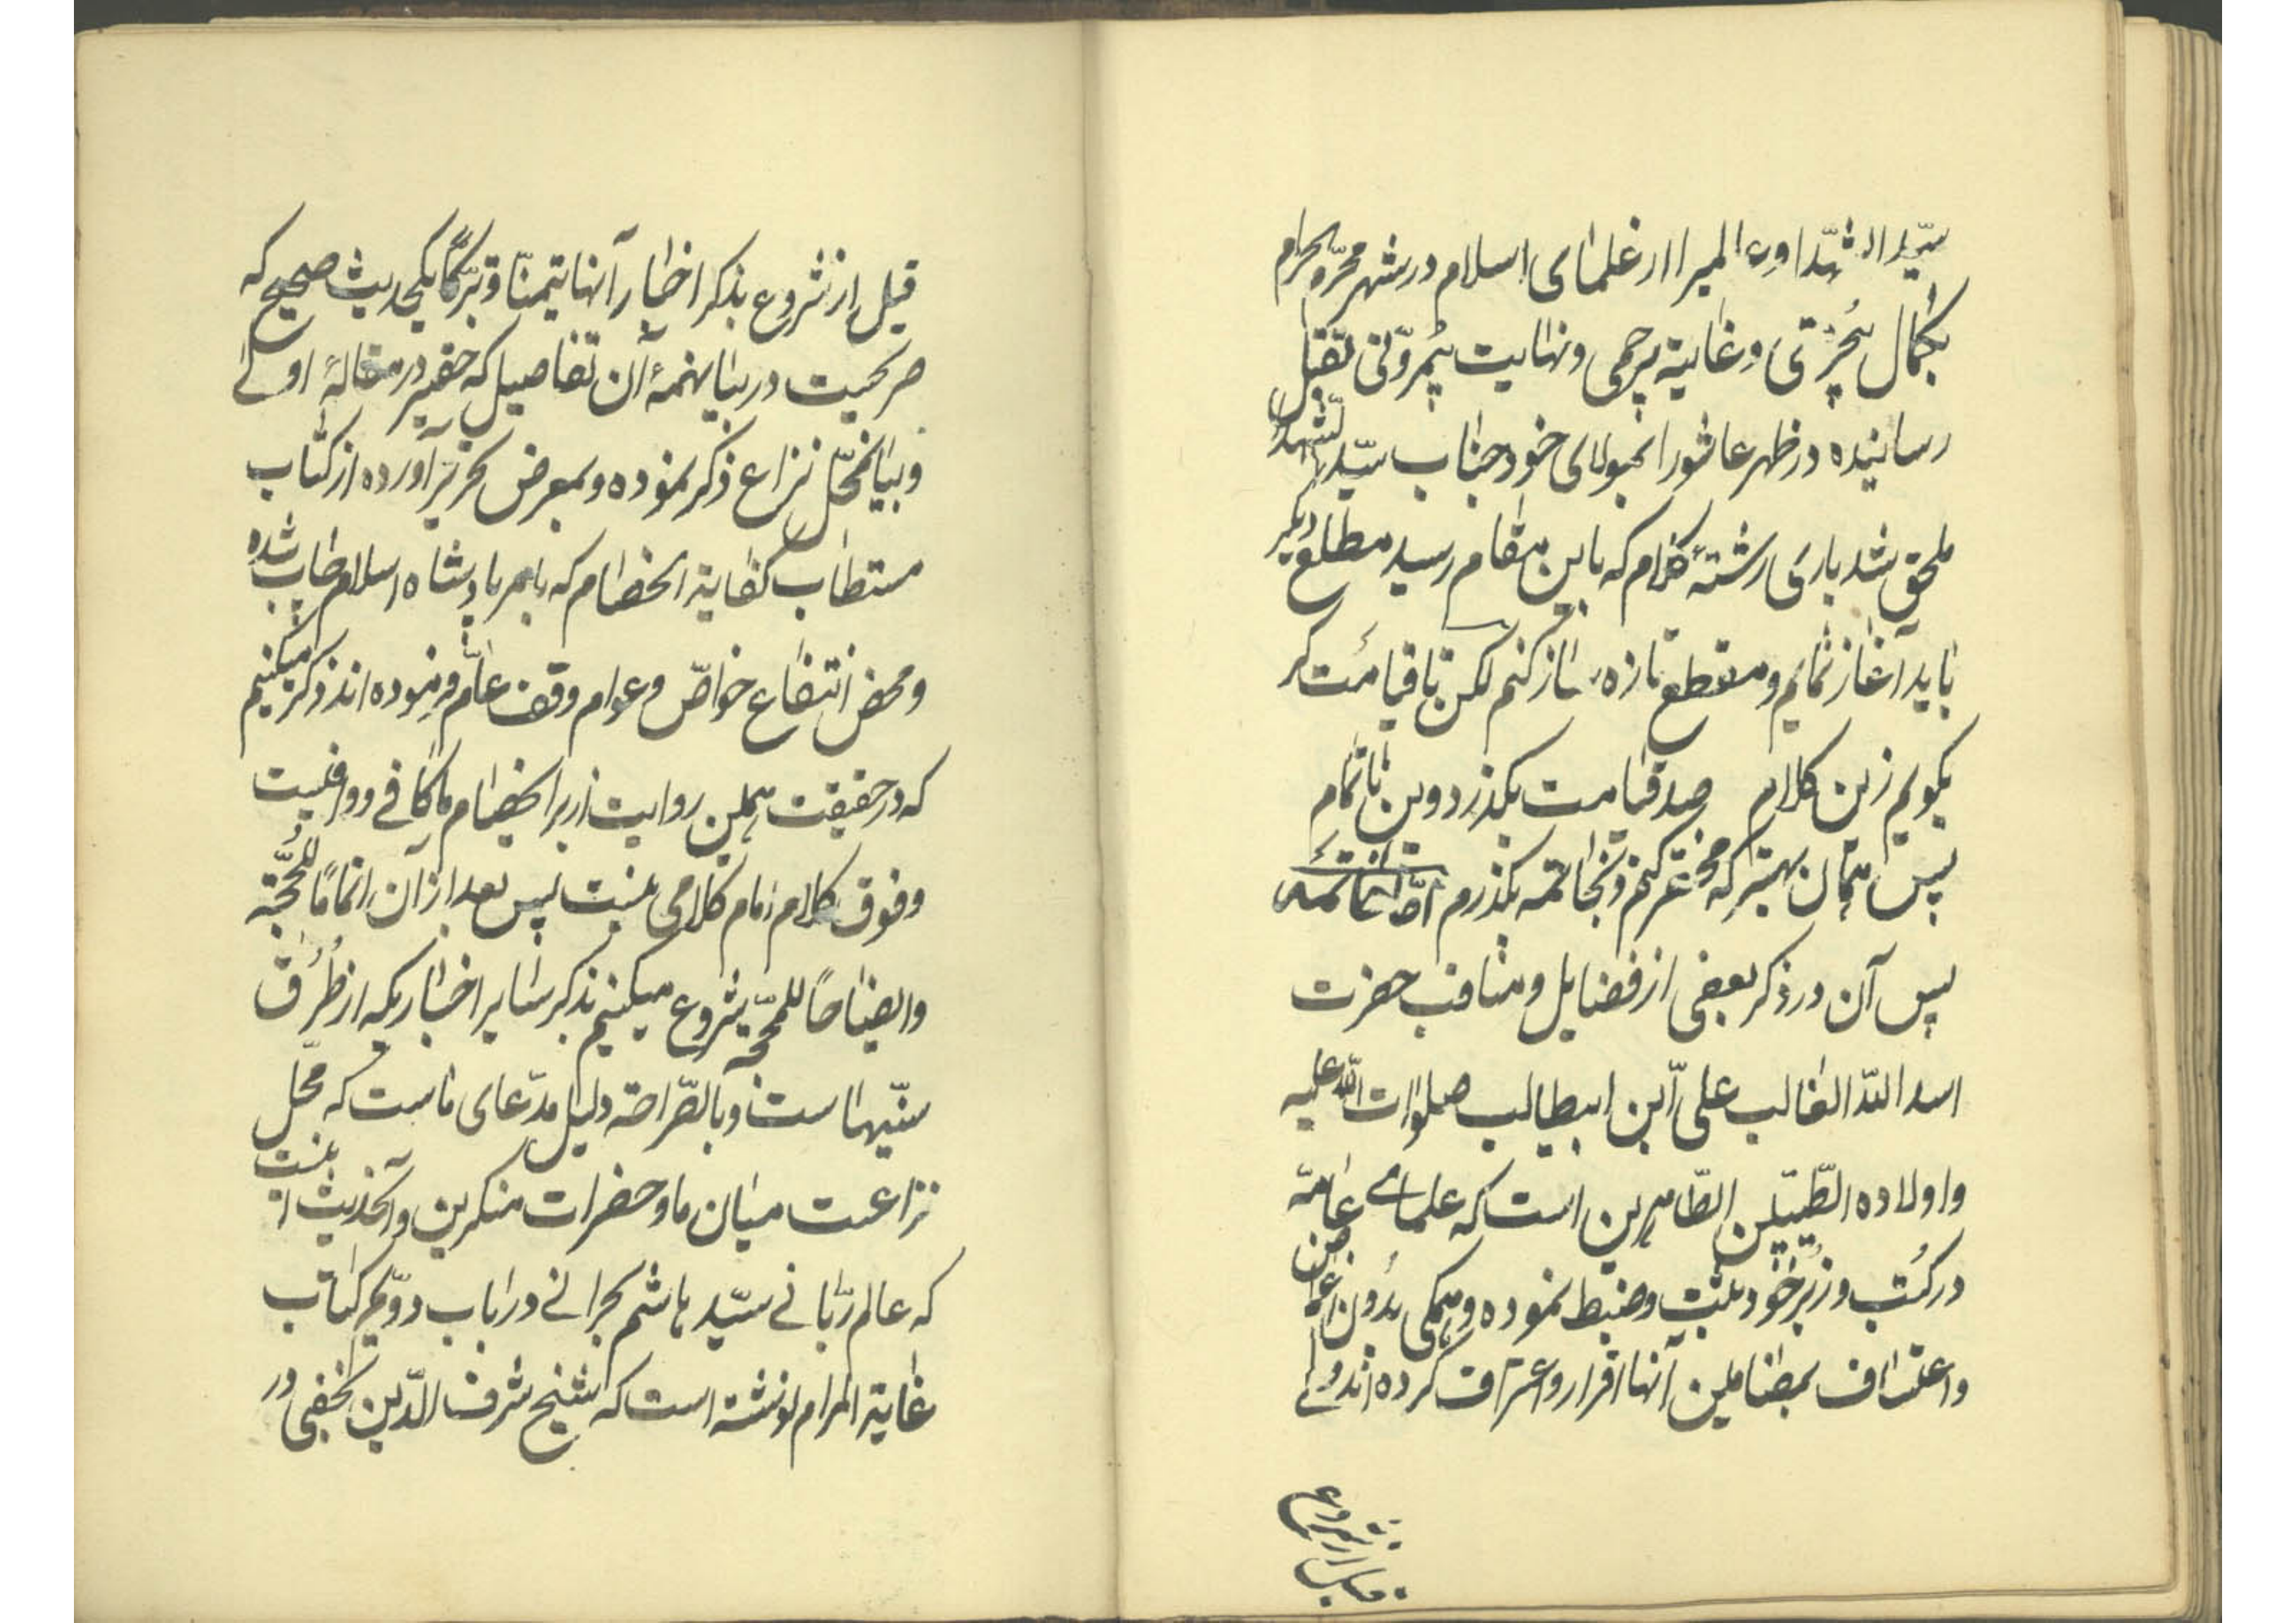 سیّد الشّهدا وع المیرا از علمای اسلام در شهر محرّم الحرام
بکمال بُحرْمتی و غایة بیرحمی و نهایت بیمروّتی بقتل
رسانیده در ظهر عاشورا بمولای خود جناب سیّد الشهدا
ملحق شد باری رشتهٔ کلام که باین مقام رسید مطلع دیگر
باید آغاز نمایم و مقطع تازه ساز کنم لکن تا قیامت گر
بگویم زین کلام صد قیامت بگذرد وین ناتمام
پس همان بهتر که مختصر کنم و بخاتمه بگذرم امّا الخاتمه
پس آن در ذکر بعضی از فضایل و مناقب حضرت
اسد اللّه الغالب علیّ ابن ابیطالب صلوات اللّه علیه
و اولاده الطّیّبین الطّاهرین است که علمای عامّه
در کُتب و زُبُر خود ثبت و ضبط نموده و همگی بدُون اغماض
و اعتساف بمضامین آنها اقرار و اعتراف کرده‌اند ولی
قبل از شروع
قبل از شروع بذکر اخبار آنها تیمّناً و تبرّکاً بیکحدیث صحیح که
صریحست در بیان همهٔ آن تفاصیل که حقیر در مقالهٔ اولی
و بیان محلّ نزاع ذکر نموده و بمعرض تحریر آورده از کتاب
مستطاب کفایة الخصام که بامر پادشاه اسلام چاپ شده
و محض انتفاع خواصّ و عوام وقف عامّ فرموده‌اند ذکر میکنیم
که در حقیقت همین روایت از برای خصام ما کافی و وافیست
و فوق کلام امام کلامی نیست پس بعد از آن اتماماً للحُجّة
و ایضاحاً للمحجّة شروع میکنیم بذکر سایر اخباریکه از طُرُق
سنّیها است و بالصّراحة دلیل مدّعای ماست که محلّ
نزاعست میان ما و حضرات منکرین و آنحدیث اینست
که عالم ربّانی سیّد هاشم بحرانی در باب دوّیم کتاب
غایة المرام نوشته است که شیخ شرف الدّین نجفی در